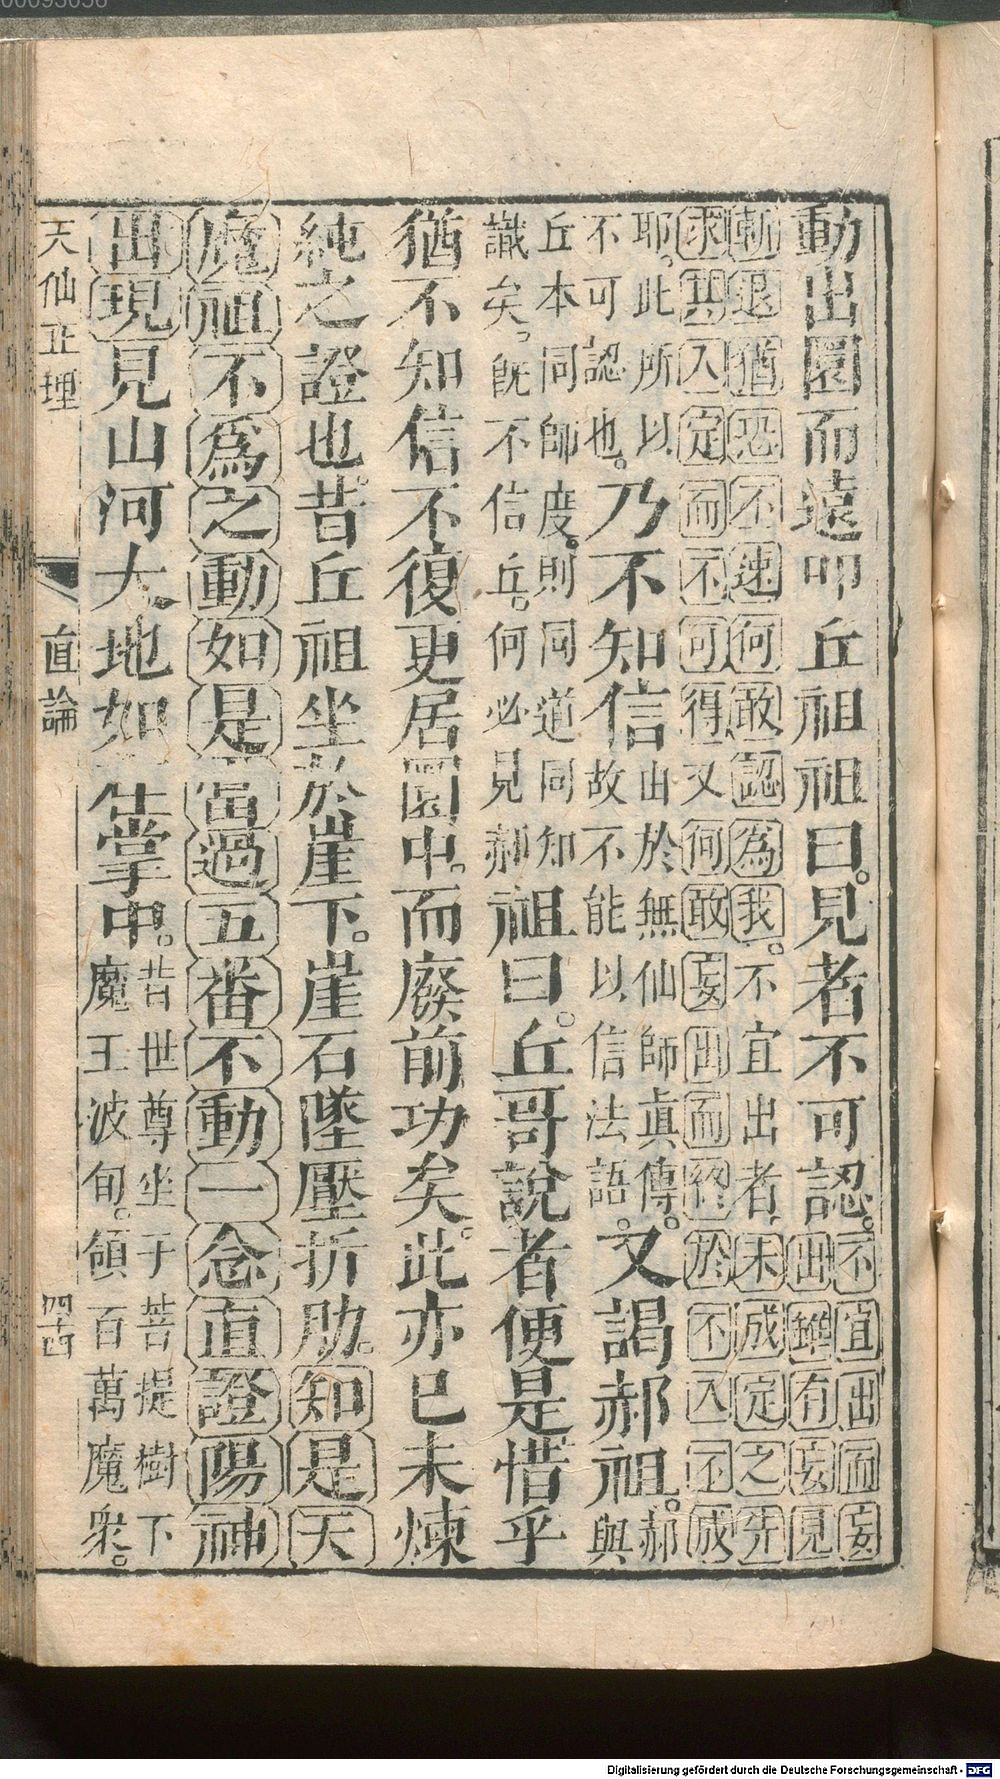 動出園而遠叩丘祖祖曰。見者不可認。不宜出而妄
出雖有妄見
斬退猶恐不速何敢認為我。不宜出者。未成定之先
求其入定而不可得又何敢妄出而終於不入不成
耶。此所以
不可認也。乃不知信由於無仙師真傳。
故不能以信法語。又謁郝祖。郝
與
丘本同師度。則同道同知
識矣。既不信丘。何必見郝祖曰。丘哥說者便是惜乎
猶不知信不復更居園中。而廢前功矣。此亦已未煉
純之證也。昔丘祖坐於崖下。崖石墜壓折肋。知是天
魔祖不為之動如是當過五番不動一念直證陽神
出現見山河大地如掌中。昔世尊坐于菩提樹下
魔王波旬。領百萬魔衆。
天仙正理 直論 四十四
00093056
Digitalisierung gefördert durch die Deutsche Forschungsgemeinschaft - DFG